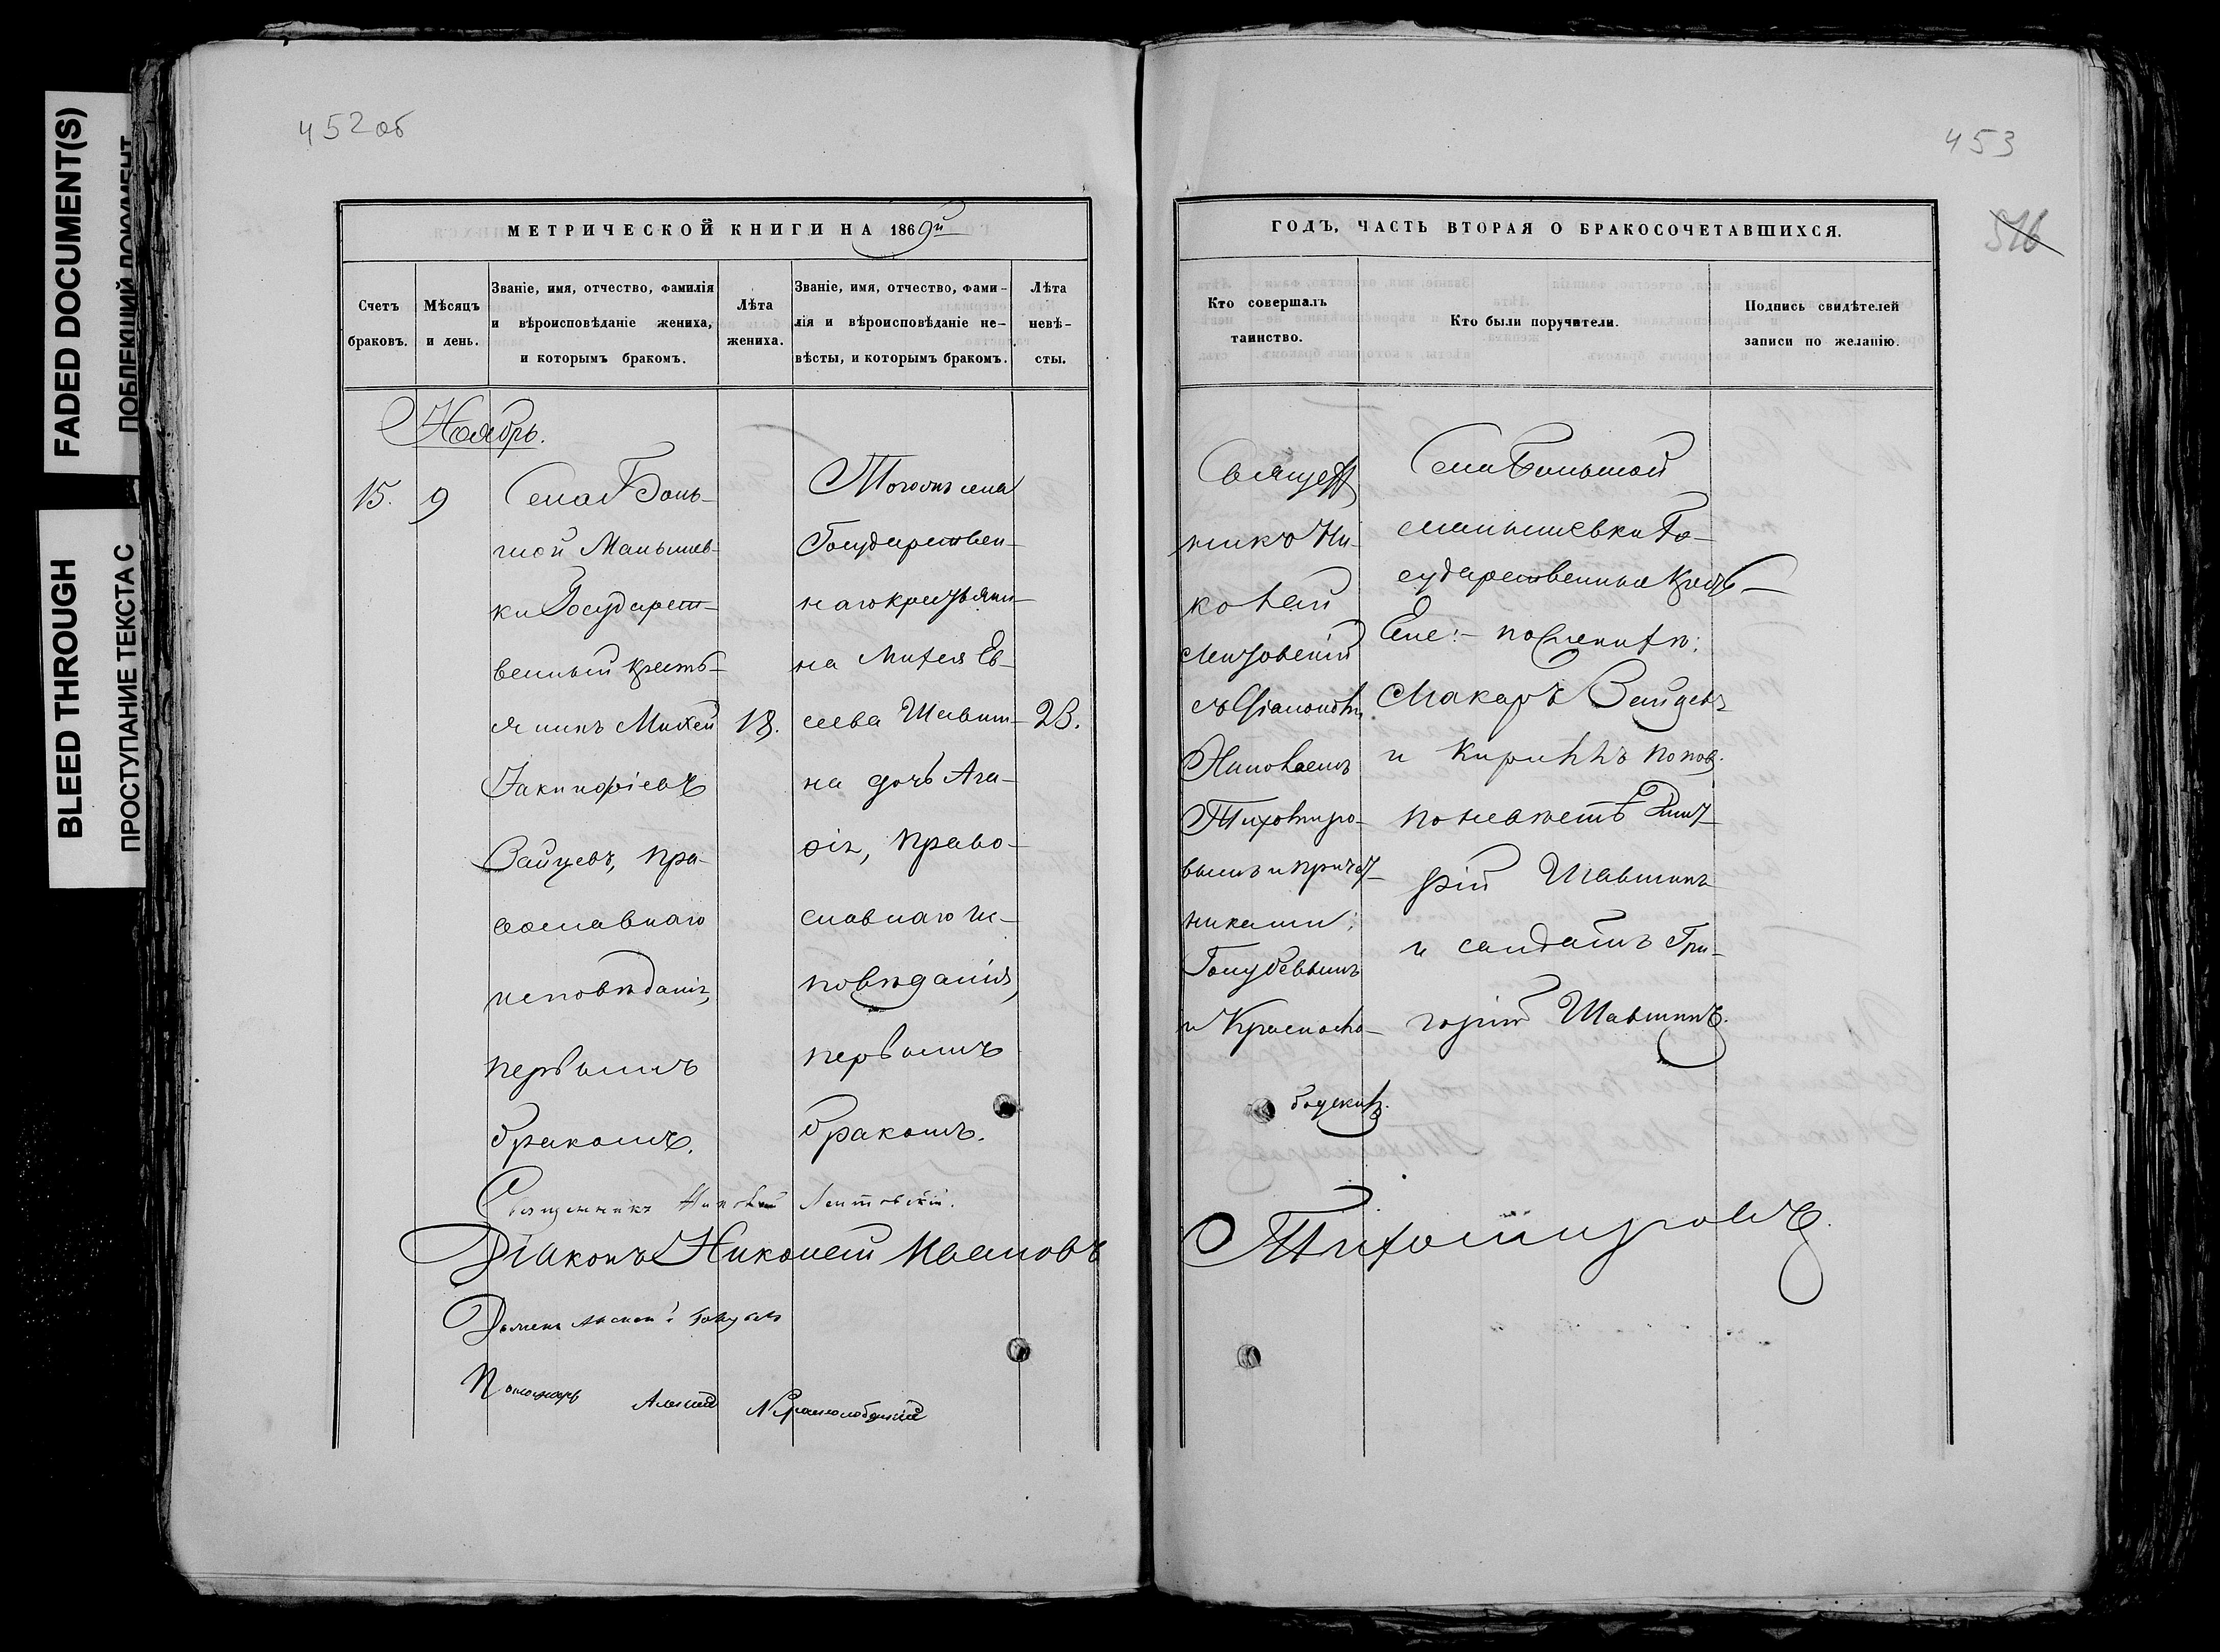 FADED DOCUMENT(S)
ПОБЛЕКШИЙ ДОКУМЕНТ
BLEED THROUGH
ПРОСТУПАНИЕ ТЕКСТА С
452об
МЕТРИЧЕСКОЙ КНИГИ НА 1869й
Счетъ
браковъ.
Мѣсяцъ
и день.
Званіе, имя, отчество, фамилія
и вѣроисповѣданіе жениха,
и которымъ бракомъ.
Лѣта
жениха.
Званіе, имя, отчество, фами-
лія и вѣроисповѣданіе не-
вѣсты, и которымъ бракомъ.
Лѣта
невѣ-
сты.
Ноябрь.
15.
9
Села Боль-
шой Малышев-
ки Государст-
венный кресть-
янинъ Михей
Іакинфіевъ
Зайцевъ, пра-
вославнаго
исповѣданія,
первымъ
бракомъ.
18.
Тогожъ села
Государствен-
наго крестьяни-
на Михея Ев-
сеева Шавши-
на дочь Ага-
фія, право-
славнаго ис-
повѣданія,
первымъ
бракомъ.
23.
Священникъ Николай
Діаконъ Николай Ивановъ
Голубевъ
Пономарь Алексей Краснослободскій
453
516
ГОДЪ, ЧАСТЬ ВТОРАЯ О БРАКОСОЧЕТАВШИХСЯ.
Кто совершалъ
таинство.
Кто были поручители.
Подпись свидѣтелей
записи по желанію.
Священ
никъ Ни-
колай
съ Діакономъ
Николаемъ
Тихомиро-
вымъ и причет-
никами:
Голубевымъ
и Красносло-
бодскимъ.
Села Большой
Малышевки Го-
сударственные крест-
не:- по женихѣ:
Макаръ Зайцевъ
и Кириллъ Поповъ.
по невѣстѣ Дмит-
рій Шавшинъ
и солдатъ Гри-
горій Шавшинъ.
Тихомировъ.